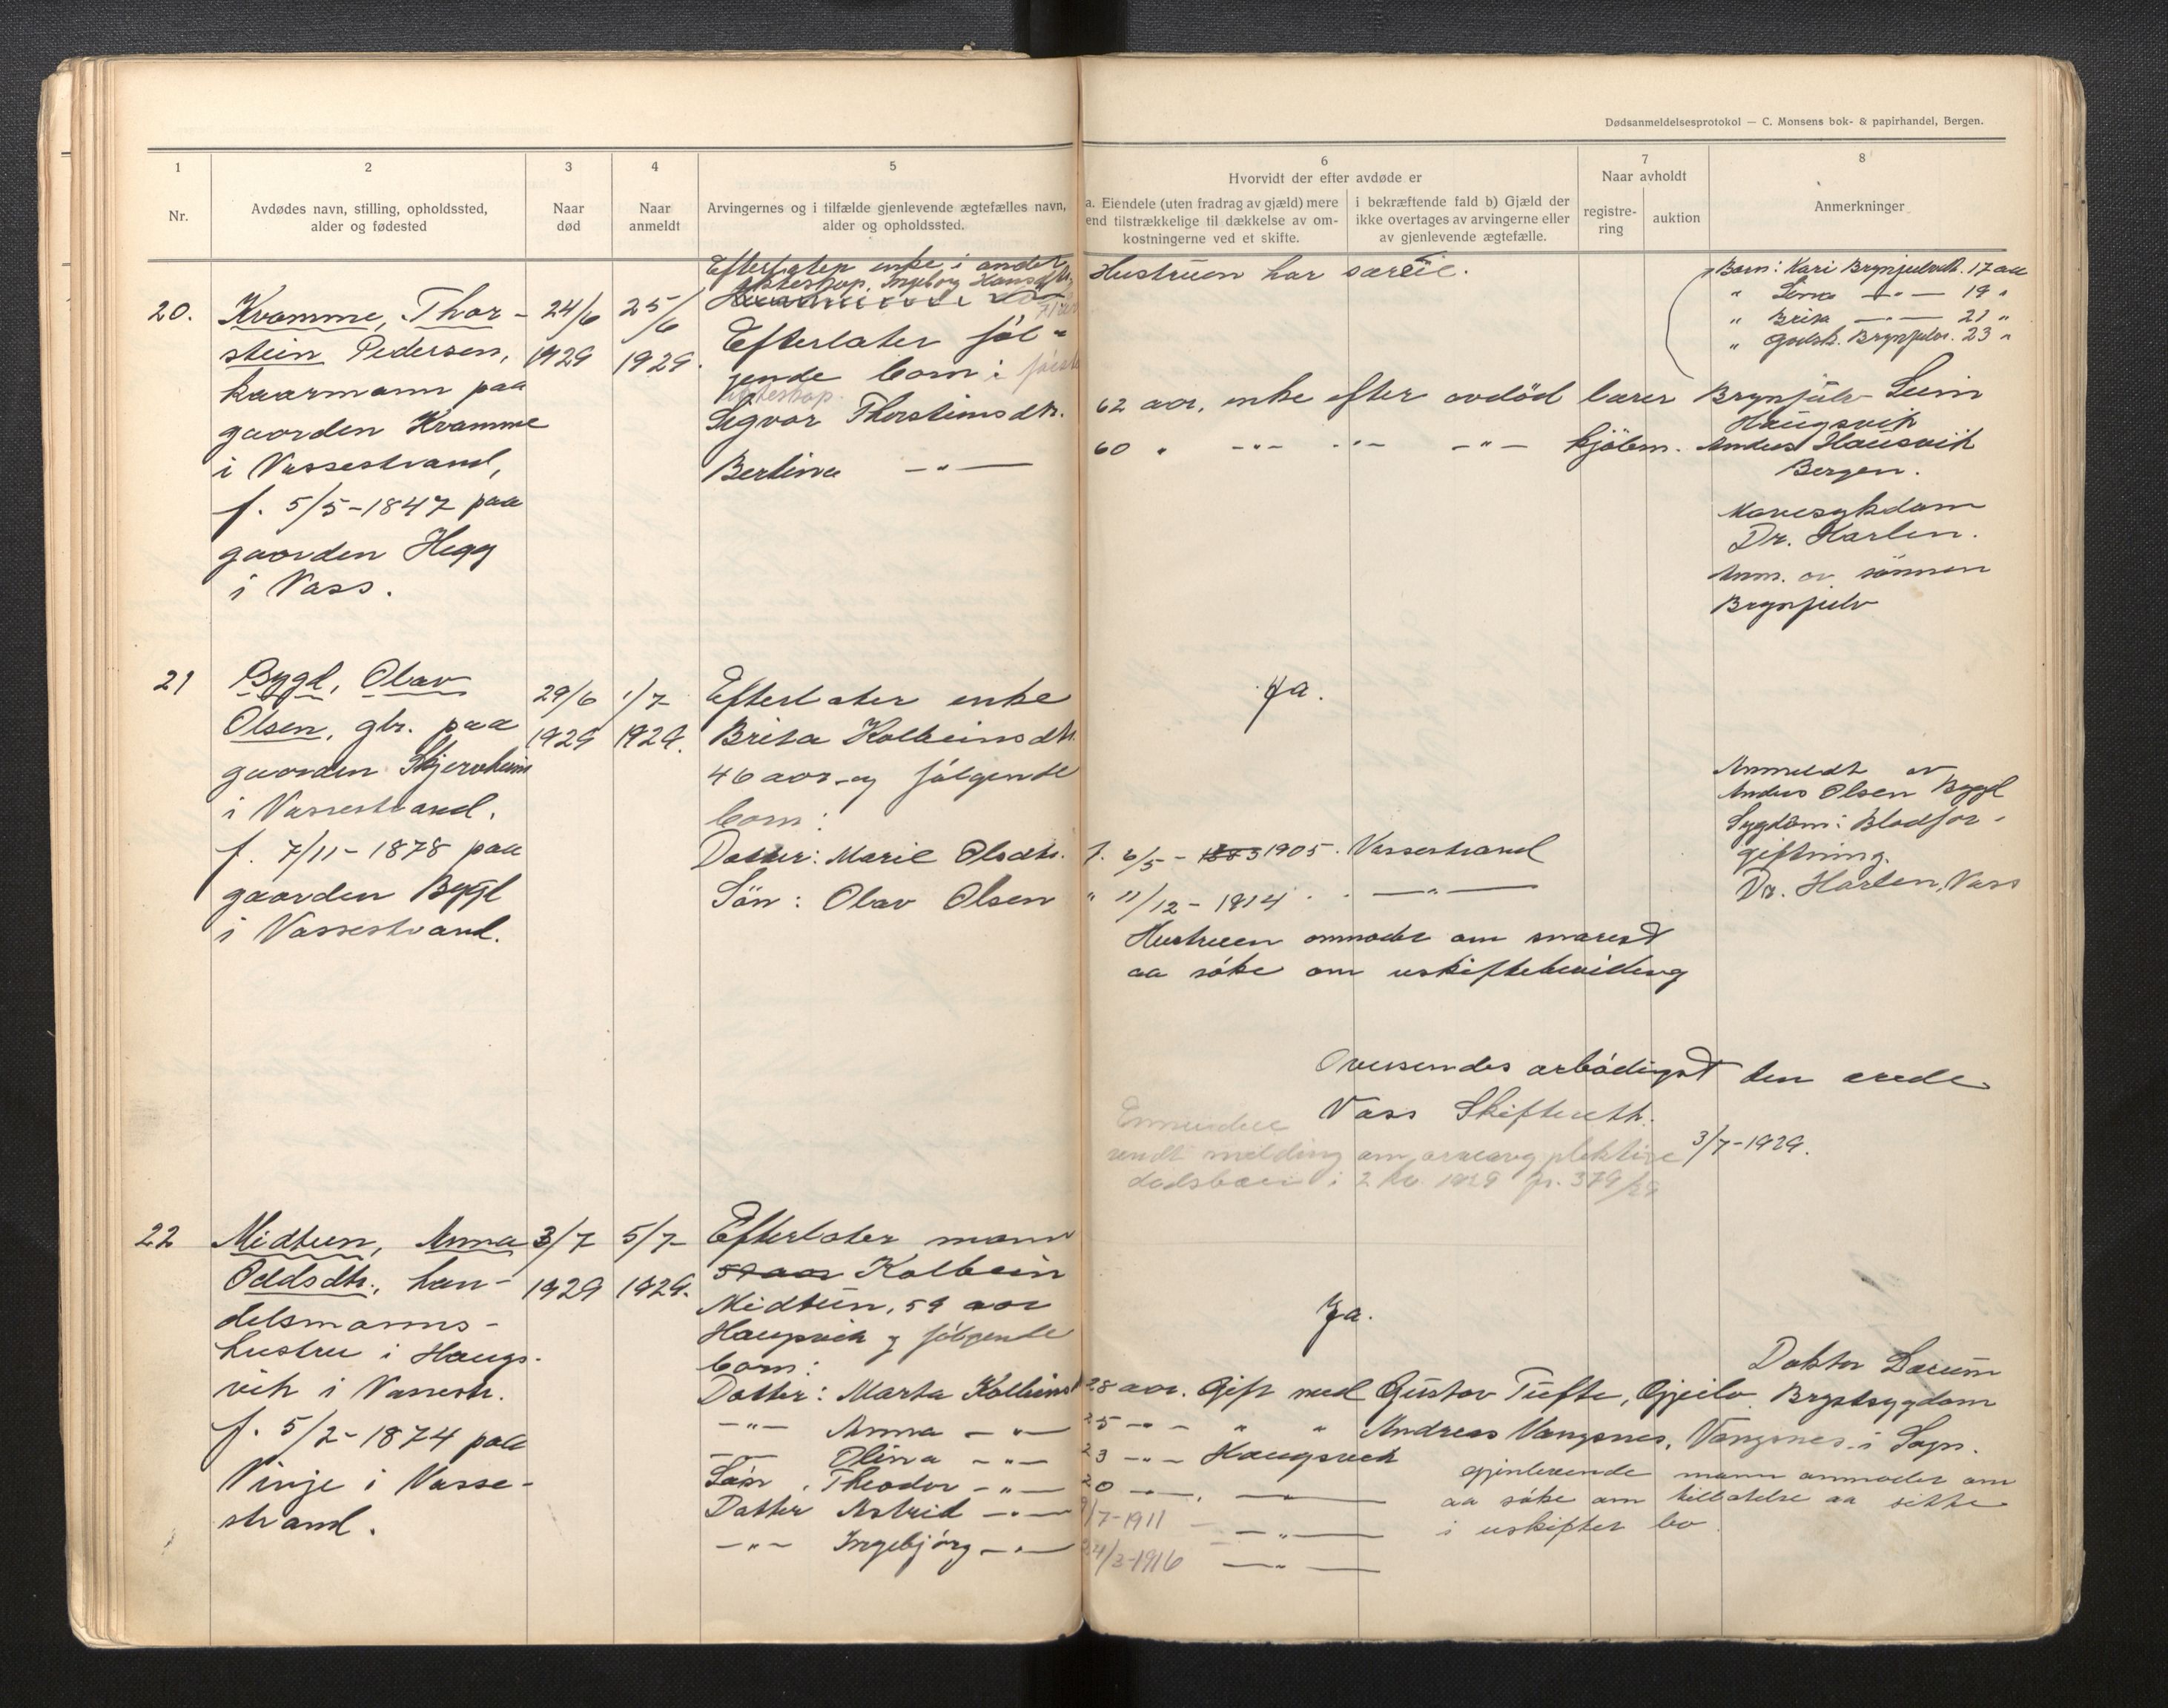 Dødsanmeldelsesprotokol — C. Monsens bok- & papirhandel, Bergen.
1 2 3 4 5 6 7 8
Nr.
Avdødes navn, stilling, opholdssted,
alder og fødested
Naar
død
Naar
anmeldt
Arvingernes og i tilfælde gjenlevende ægtefælles navn,
alder og opholdssted.
Hvorvidt der efter avdøde er
a. Eiendele (uten fradrag av gjæld) mere
end tilstrækkelige til dækkelse av om-
kostningerne ved et skifte.
i bekræftende fald b) Gjæld der
ikke overtages av arvingerne eller
av gjenlevende ægtefælle.
Naar avholdt
registre-
ring
auktion
Anmerkninger
20.
Kvamme, Thor-
stein Pedersen,
kaarmann paa
gaarden Kvamme
i Vassestrand,
f. 5/5-1847 paa
gaarden Hegg
i Vass.
24/6
1929
25/6
1929.
Efterlater enke i andet
ekteskap, Ingeborg Hansdtr.
Efterlater føl-
gende born i første
ekteskap.
Sigvor Thorsteinsdtr.
Bertina —"—
Hustruen har særeie.
62 aar, enke efter avdød lærer Brynjulv Seim
Haugsvik
60 " —"— —"— —"— kjøbm. Anders Hausvik
Bergen.
Born: Kari Brynjulvdt. 17 aar
" —"— 19 "
" Brita —"— 21 "
" Brynjulv. 23 "
Mavesykdom
Dr. Harlen.
Anm. av sønnen
Brynjulv
21
Bygd, Olav
Olsen, gbr. paa
gaarden Skjervheim
i Vassestrand.
f. 7/11-1878 paa
gaarden Bygd
i Vassestrand.
29/6
1929
1/7
1929.
Efterlater enke
Brita Kolbeinsdtr.
46 aar og følgende
born:
Datter: Marie Olsdtr.
Søn: Olav Olsen
Ja.
f. 6/5-1905. Vassestrand
" 11/12-1914. —"—
Hustruen anmoder om snarest
aa søke om uskiftebevilling
Anmeldt av
Anders Olsen Bygd
Sygdom: Blodfor-
giftning.
Dr. Harlen, Vass
Oversendes ærbødigst den ærede
Vass Skifterett.
3/7-1929.
sendt melding om
dødsboer i 2 kv. 1929 jr. 379/29
22
Midtun, Anna
Oddsdtr., han-
delsmanns-
hustru i Haugs-
vik i Vassestr.
f. 5/2-1874 paa
Vinje i Vasse-
strand.
3/7
1929
5/7
1929.
Efterlater mann
59 aar Kolbein
Midtun, 59 aar
Haugsvik og følgende
born:
Datter: Marta Kolbeinsd
—"— Anna —"—
—"— Olina —"—
Søn, Theodor —"—
Datter Astrid —"—
—"— Ingebjørg —"—
Ja.
28 aar. Gift med Gustav Tufte, Gjeilo.
25 —"— " " Andreas Vangsnes, Vangsnes i Sogn.
23 —"— Haugsvik
20 —"—. —"—
9/7-1911 —"—
24/3-1916 —"—
Doktor Lærum
Brystsygdom
gjenlevende mann anmoder om
aa søke om tillatelse aa sitte
i uskiftet bo.